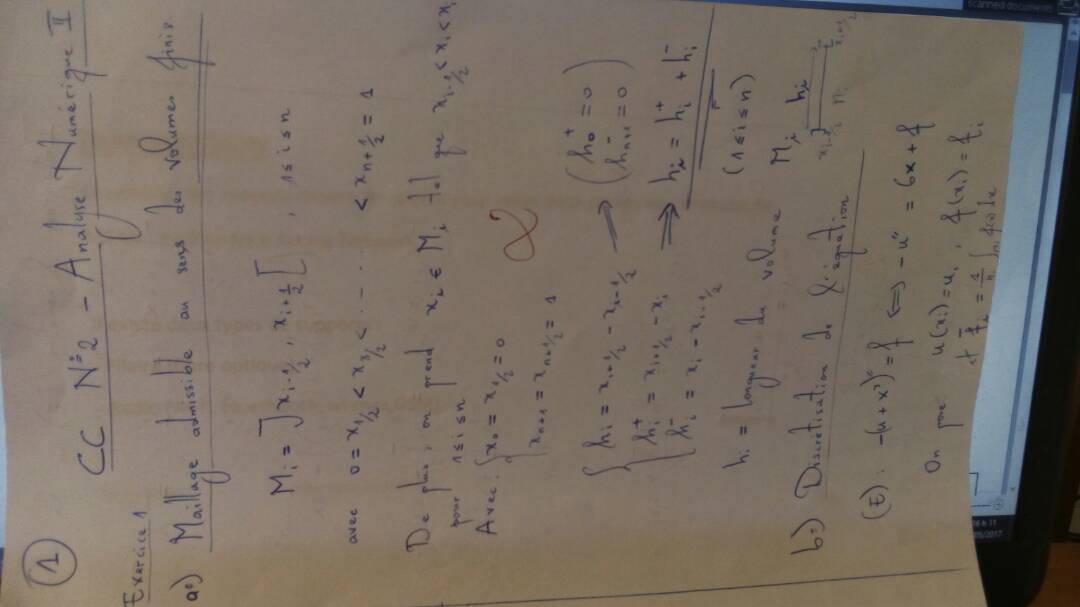 1
CC N°2 - Analyse Numérique II
Exercice 1
a°) Maillage admissible au sens des volumes finis.
M_i = ]x_{i-1/2}, x_{i+1/2}[ , 1≤i≤n
avec 0 = x_{1/2} < x_{3/2} < ... < x_{n+1/2} = 1
De plus, on prend x_i ∈ M_i tel que x_{i-1/2} < x_i < x_i
pour 1≤i≤n
Avec : { x_0 = x_{1/2} = 0
x_{n+1} = x_{n+1/2} = 1
{ h_i = x_{i+1/2} - x_{i-1/2} ⇒ (h_0^+ = 0)
(h_{n+1}^- = 0)
{ h_i^+ = x_{i+1/2} - x_i ⇒ h_i = h_i^+ + h_i^-
h_i^- = x_i - x_{i-1/2}
h_i = longueur du volume M_i (1≤i≤n)
h_i
x_{i-1/2} M_i x_{i+1/2}
b°) Discrétisation de l'équation
(E) : -(u + x³)'' = f ⟺ -u'' = 6x + f
On pose u(x_i) = u_i , f(x_i) = f_i
scanned documents